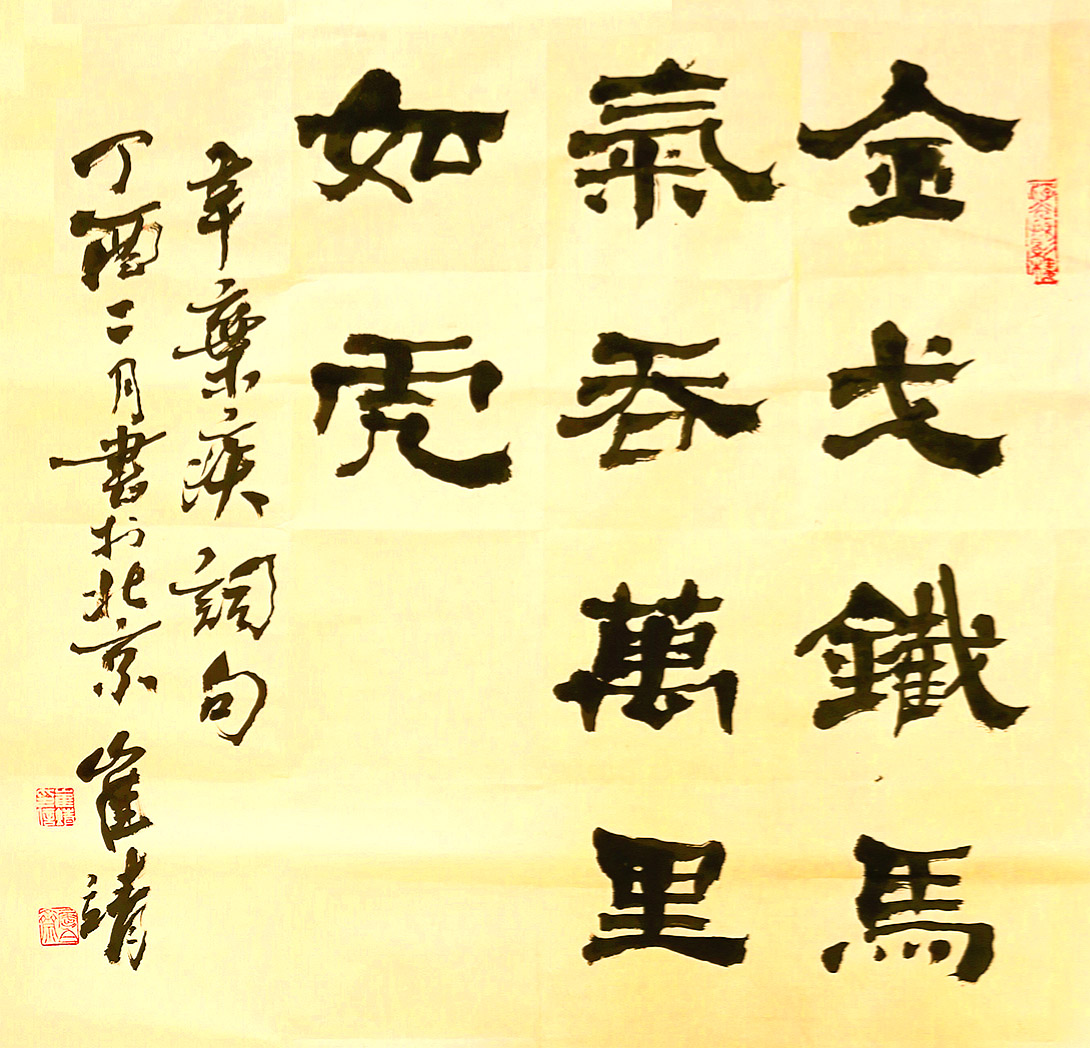 金戈鐵馬
氣吞萬里
如虎
辛棄疾詞句
丁酉二月書於北京 崔靖